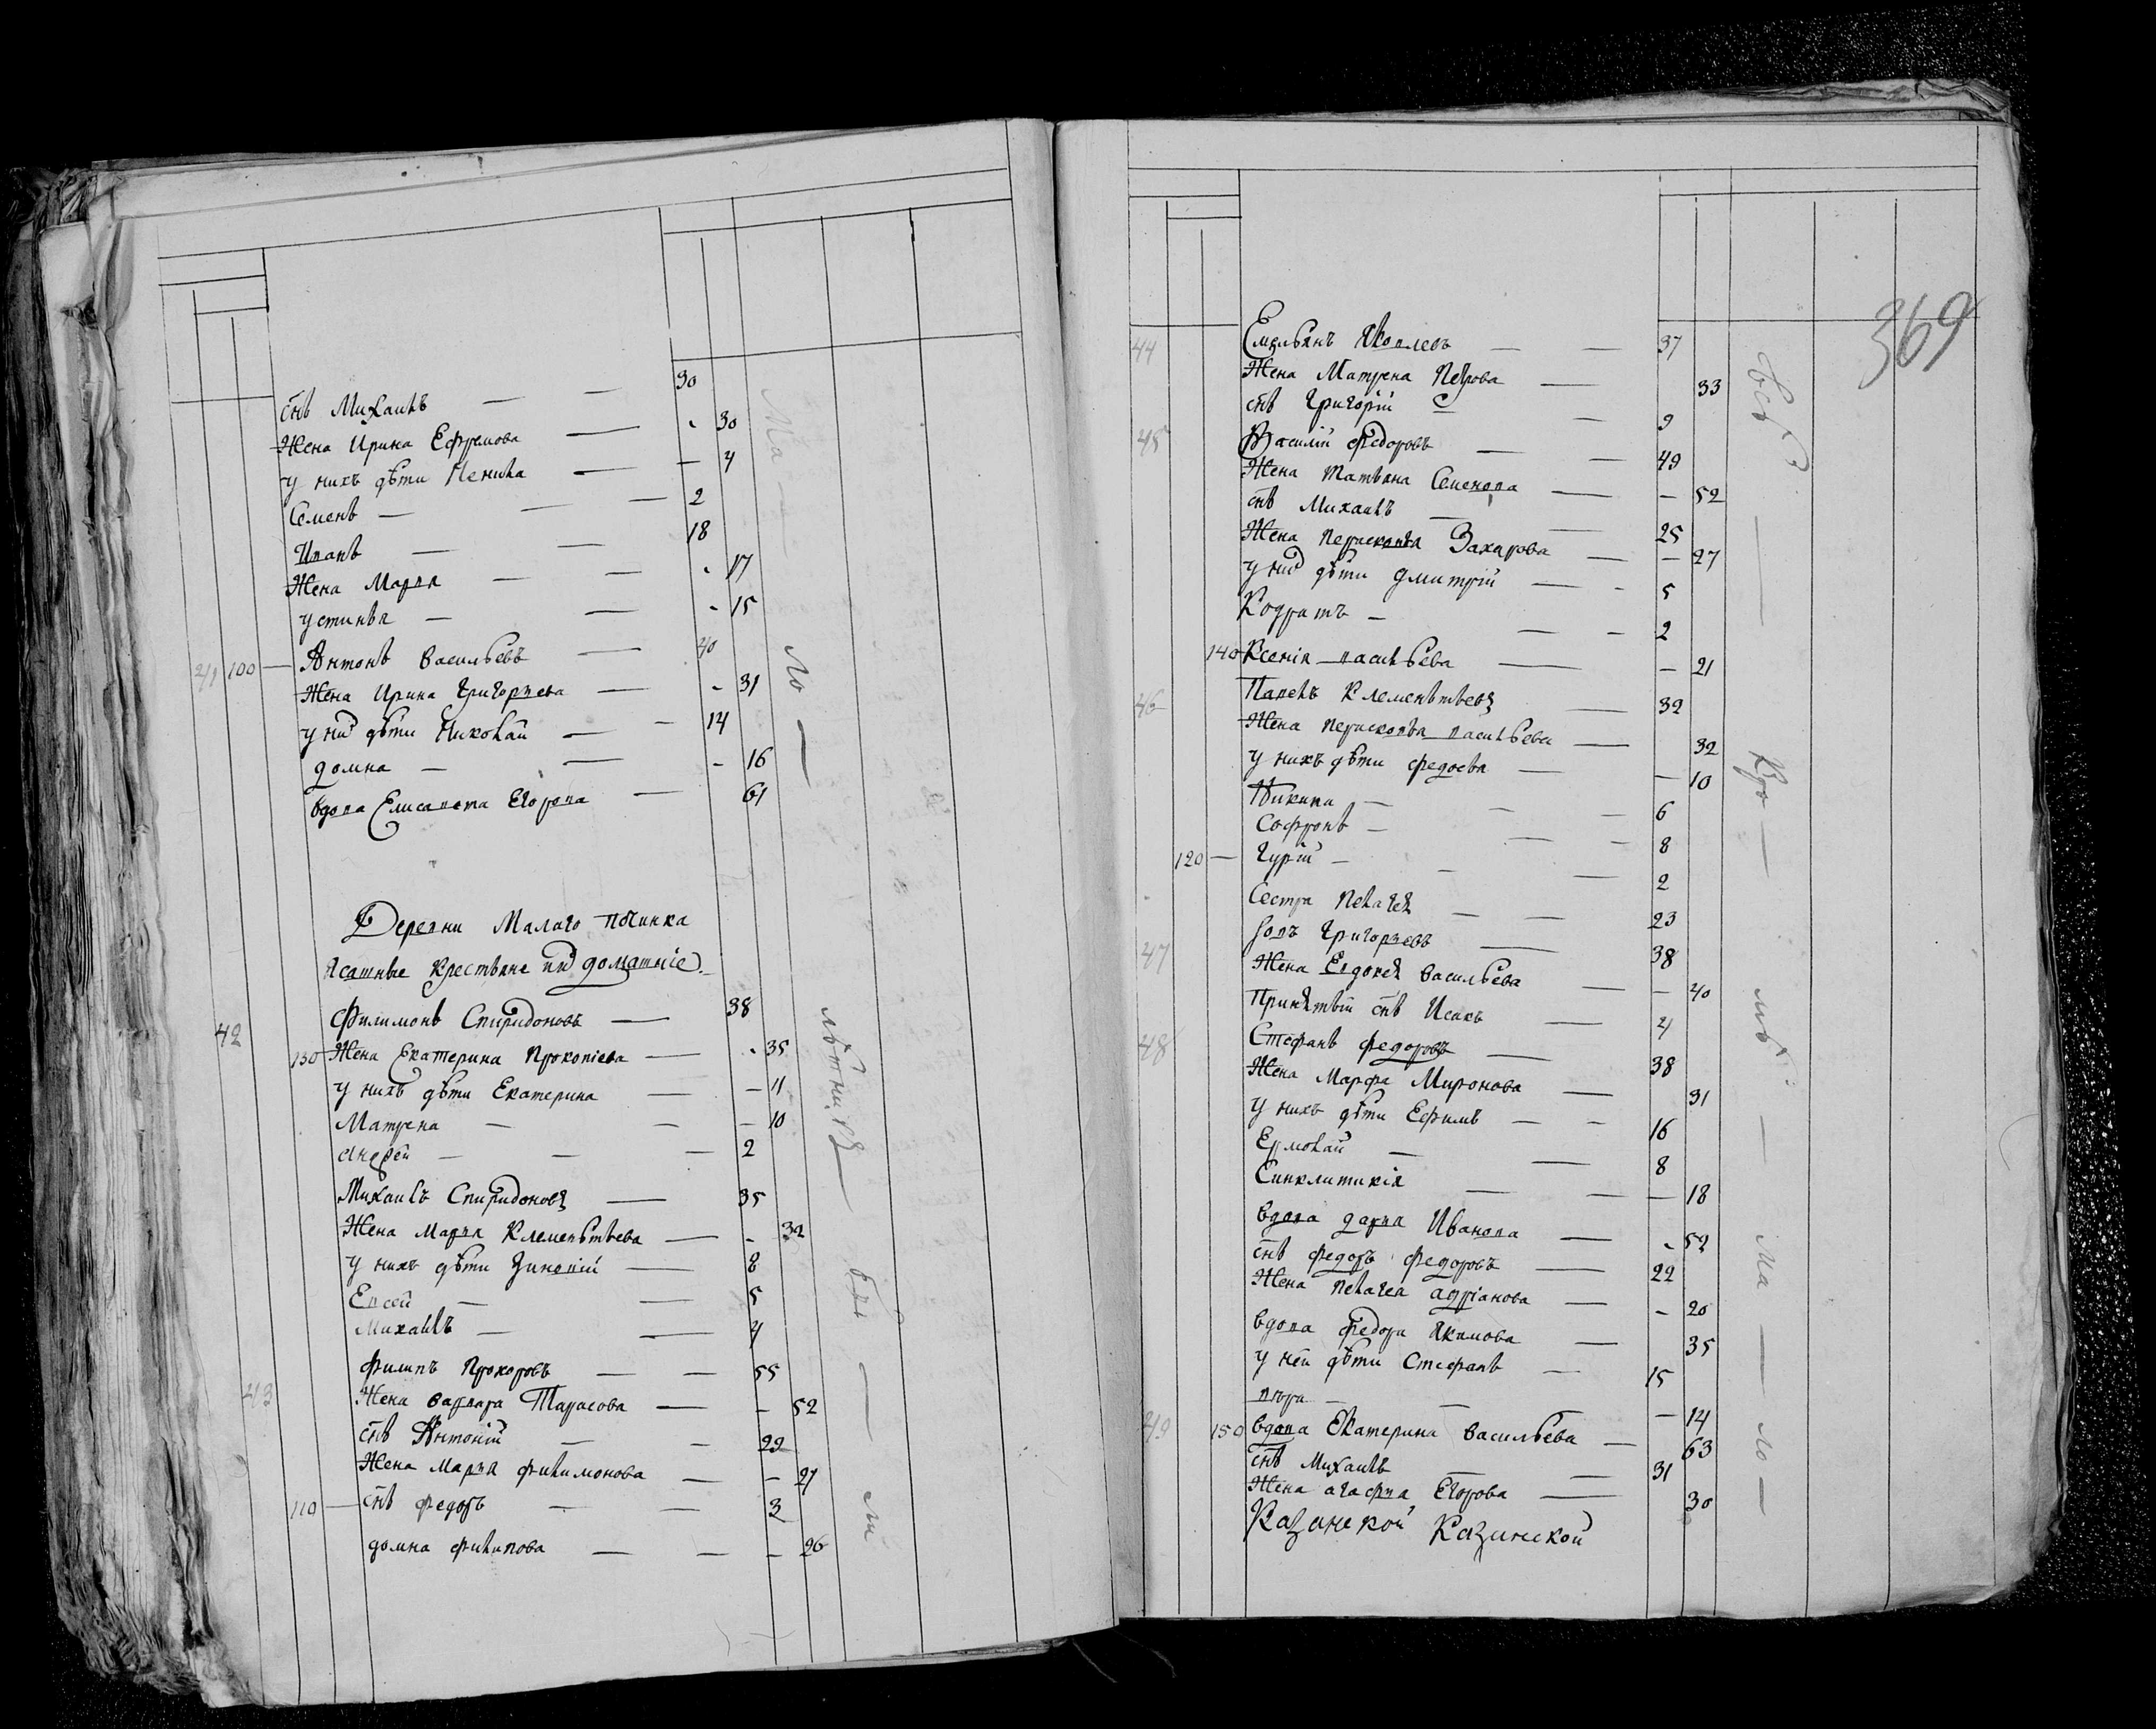 снъ Михаилъ — — 30
Жена Ирина Ефремова — 30
у нихъ дѣти — 4
Семенъ — — — 2
Иванъ — — 18
Жена Марья — — 17
Устинья — — 15
41 100 — Антонъ Васильевъ — 40
Жена Ирина Григорьева — 31
у ни дѣти Николай — — 14
Домна — — 16
вдова Елисавета Егорова — 61
Деревни Малаго починка
Ясашные крестьяне и домашніе
42 Филимонъ Спиридоновъ — 38
130 Жена Екатерина Прокопіева — 35
у нихъ дѣти Екатерина — 11
Матрена — — 10
Андрей — — — 2
Михаилъ Спиридоновъ — 35
Жена Марья Клементьева — 32
у нихъ дѣти Зиновій — 8
Евсей — — 5
Михаилъ — — 4
43 Филипъ Прохоровъ — — 55
Жена Варвара Тарасова — 52
снъ Антоній — — 22
Жена Марья Филимонова — 27
110 — снъ Федоръ — — 3
Домна Филипова — — 26
Ма — ло — лѣтних — бы — ли
369
44 Емельянъ Яковлевъ — — 37
Жена Матрена Петрова — 33
снъ Григорій — — 9
45 Василій Федоровъ — — 49
Жена Татьяна Семенова — — 52
снъ Михаилъ — — 25
Жена Перасковья Захарова — — 27
у ни дѣти Дмитрій — - 5
Кодратъ — — - 2
140 Ксенія васильева — — 21
46 Павелъ Клементьевъ — 32
Жена Перасковья васильева — 32
у нихъ дѣти Федосья — — 10
Никита — - — 6
Софронъ — — - 8
120 — Гурій — - — 2
Сестра Пелагея — — 23
47 Григорьевъ — 38
Жена Евдокея Васильева — — 40
Принятый снъ Исакъ — 4
48 Стефанъ Федоровъ — 38
Жена Марфа Миронова — 31
у нихъ дѣти Ефимъ — - 16
Ермолай — — 8
Синклитикія — — — 18
вдова Дарья Иванова — 52
снъ Федоръ Федоровъ — 22
Жена Пелагея Адріанова — — 20
вдова Федора Якимова — 35
у ней дѣти Стефанъ — 15
— — — 14
49 150 вдова Екатерина Васильева — 63
снъ Михаилъ — — 31
Жена Агафья Егорова — 30
Казанской Казанской
всѣ — кро — мѣ — ма — ло —